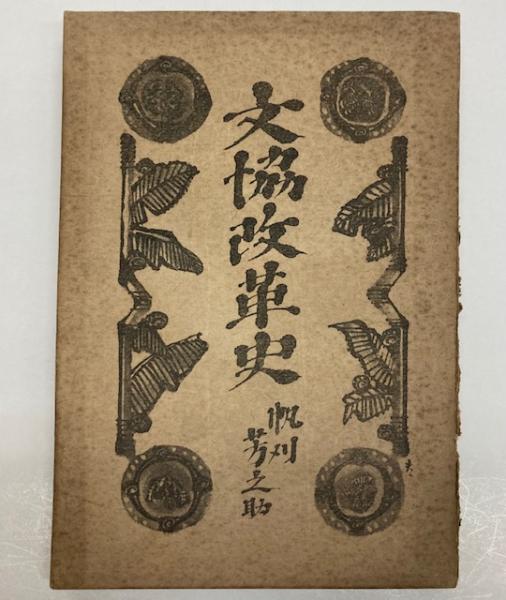 文協改革史
帆刈
芳之助